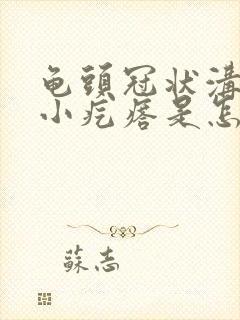 龟頭冠状溝
小疙瘩是怎
蘇志